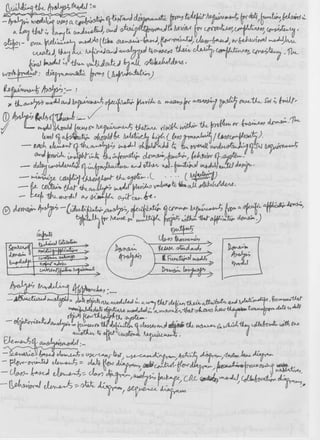 Building the Analysis Model :-
- Analysis modeling uses a combination of text and diagrammatic forms to depict requirements for data, function, behavior in
a way that is easy to understand, and straightforward to review for correctness, completeness, consistency.
steps - once preliminary models like scenario-based, flow-oriented, class-based, or behavioral models are
created they are refined and analyzed to assess their clarity, completeness, consistency. The
final model is then validated by all stakeholders.
work product : diagrammatic forms
Requirements Analysis :-
* the analysis model and requirements specification provide a means for assessing quality once the s/w is built.
① Analysis Rules of Thumb -
- model should focus on requirements that are visible within the problem or business domain. The
level of abstraction should be relatively high
- each element of the analysis model should add to the overall understanding of s/w requirements
and provide insight into the information domain, function, behavior of system.
- delay consideration of infrastructure and other non functional models until design.
- minimize coupling throughout the system.
- be certain that the analysis model provides value to all stakeholders.
- keep the model as simple as it can be.
② domain Analysis - (identification, analysis, specification of common requirements from a specific application domain,
typically for reuse on multiple projects within that application domain)
inputs
outputs
Sources of domain knowledge
technical literature
existing applications
customer surveys
expert advice
current/future requirement
Domain Analysis
class taxonomies
Reuse standards
Functional models
Domain languages
Domain Analysis Model
Analysis Modeling Approaches :-
- structured analysis - data objects are modeled in a way that defines their attributes and relationships. Processes that
manipulate data objects are modeled in a manner that shows how they transform data as data
objects flow through the system.
- object oriented analysis - focuses on the definition of classes and the manner in which they collaborate with one
another to effect customer requirements.
Elements of analysis model :-
- Scenario based elements - use-case text, use-case diagram, activity diagram, swim lane diagram
- flow-oriented elements = data flow diagram, control-flow diagram, processing narrative.
- class-based elements = class diagram, analysis package, CRC model, collaboration diagram.
- Behavioral elements = state diagram, sequence diagram